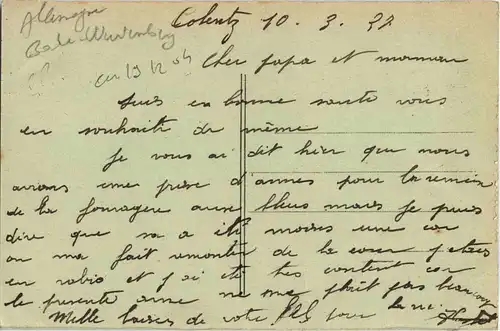 Allemagne
Bade Wurtemberg
Colentz 10. 3. 22
Cher papa et maman
Suis en bonne santé vous
en souhaite de même
Je vous ai dit hier que nous
avions une prise d'armes pour la remise
de la fouragère aux bleus mais je puis
dire que sa a été moins une car
on ma fait remonter de la cour j etais
en rabio et j'ai été très content car
le présente arme ne me plait pas beaucoup
Mille baises de votre fils pour la vie